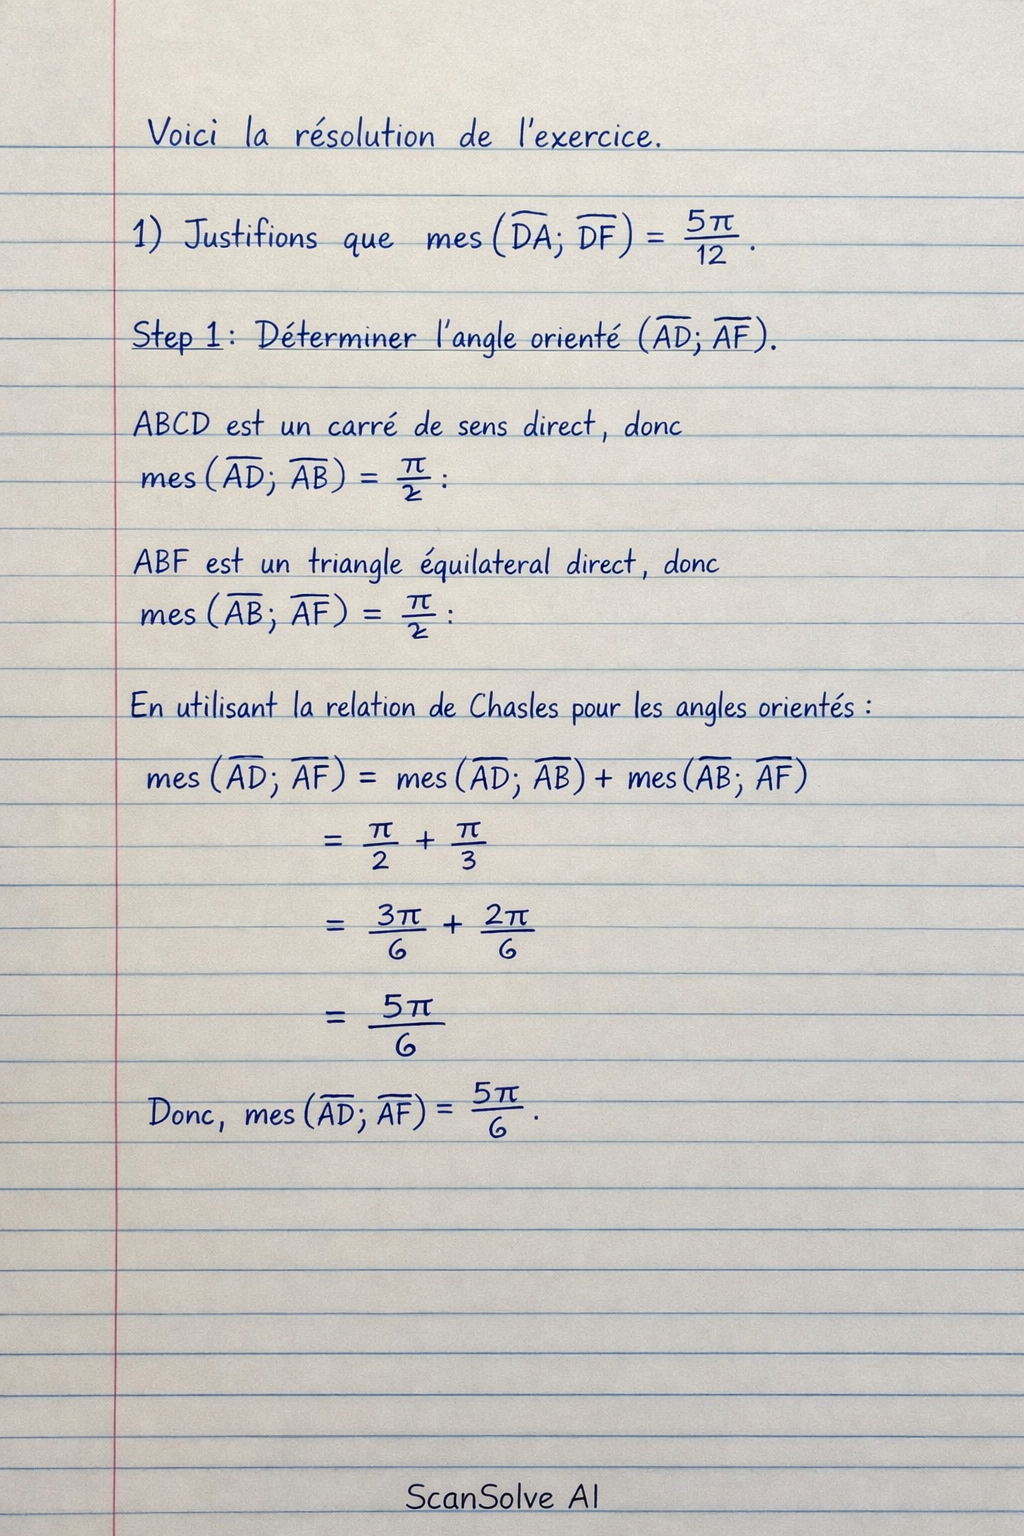 Voici la résolution de l'exercice.
1) Justifions que mes(D͞A; D͞F) = 5π/12.
Step 1: Déterminer l'angle orienté (A͞D; A͞F).
ABCD est un carré de sens direct, donc
mes(A͞D; A͞B) = π/2 :
ABF est un triangle équilateral direct, donc
mes(A͞B; A͞F) = π/2 :
En utilisant la relation de Chasles pour les angles orientés :
mes(A͞D; A͞F) = mes(A͞D; A͞B) + mes(A͞B; A͞F)
= π/2 + π/3
= 3π/6 + 2π/6
= 5π/6
Donc, mes(A͞D; A͞F) = 5π/6.
ScanSolve AI